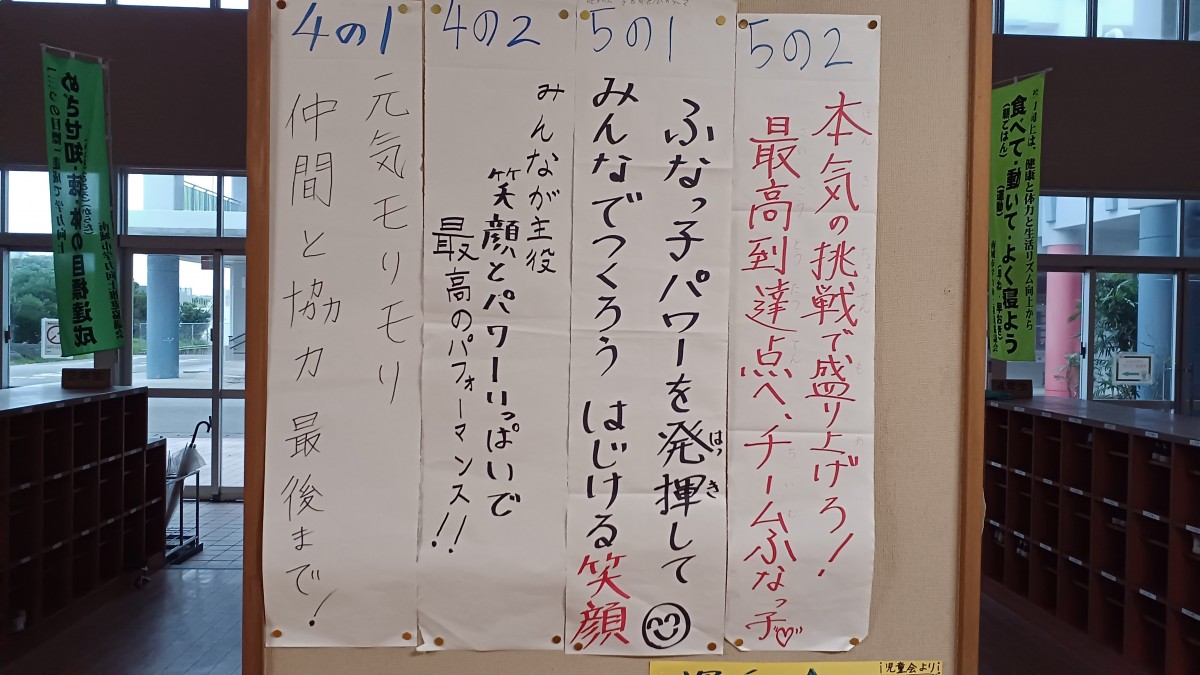 5の2
本気の挑戦で盛り上げろ!
最高到達点へ、チームふなっ子♡
5の1
ふなっ子パワーを発揮して
はっき
みんなでつくろう はじける笑顔
4の2
みんなが主役
笑顔とパワーいっぱいで
最高のパフォーマンス!!
4の1
元気モリモリ
仲間と協力 最後まで!
食べて・動いて・よく寝よう
(朝ごはん)
(運動)
(早ね・早おき)
めざせ知・徳・体の目標達成
児童会より